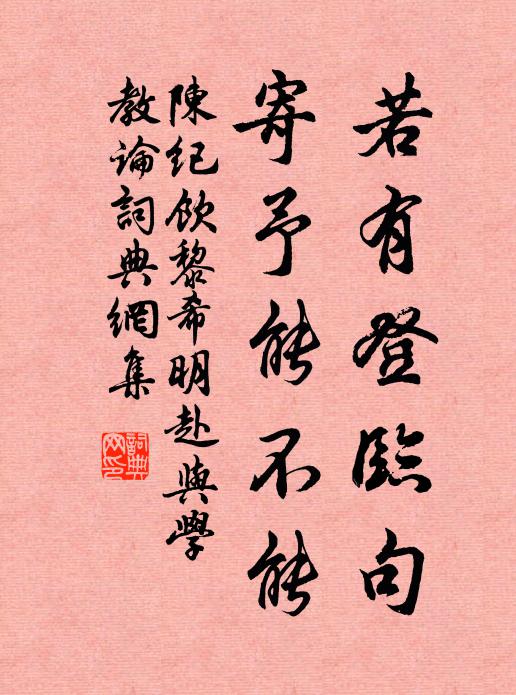 若有登臨句
寄予能不能
陳紀飲黎希明赴與學
教論詞典網集
詞典網印